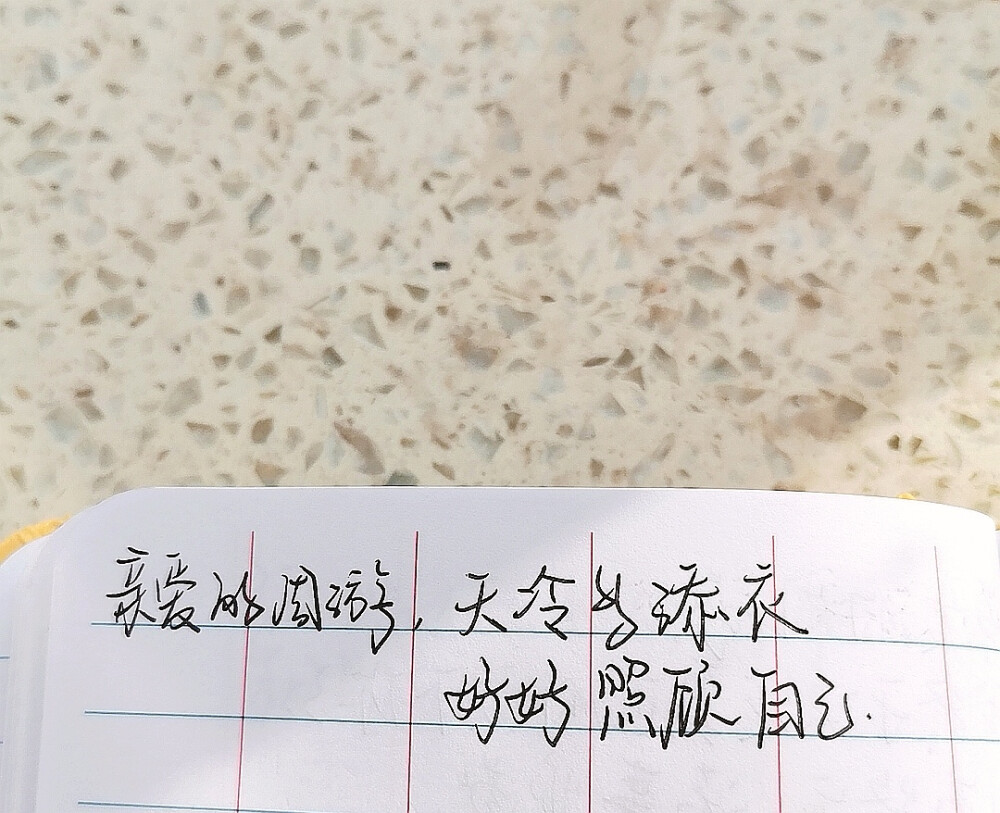 亲爱的周游, 天冷多添衣
好好照顾自己.